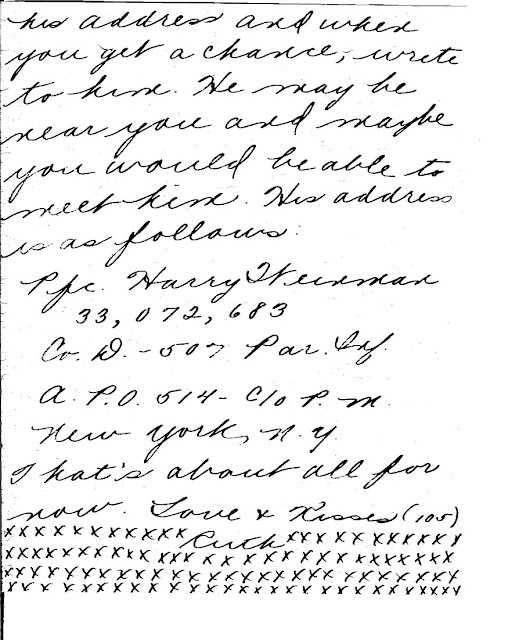 his address and when
you get a chance, write
to him. He may be
near you and maybe
you would be able to
meet him. His address
is as follows:
Pfc. Harry Weinman
33,072,683
Co. D. - 507 Par. Inf.
A.P.O. 514 - c/o P.M.
New York, N.Y.
That's about all for
now. Love & Kisses (105)
xxxxxxxxxxx Ruth xxxxxxxxxxx
xxxxxxxxxxxxxxxxxxxxxxxxxxx
xxxxxxxxxxxxxxxxxxxxxxxxxxxx
xxxxxxxxxxxxxxxxxxxxxxxxxxxx